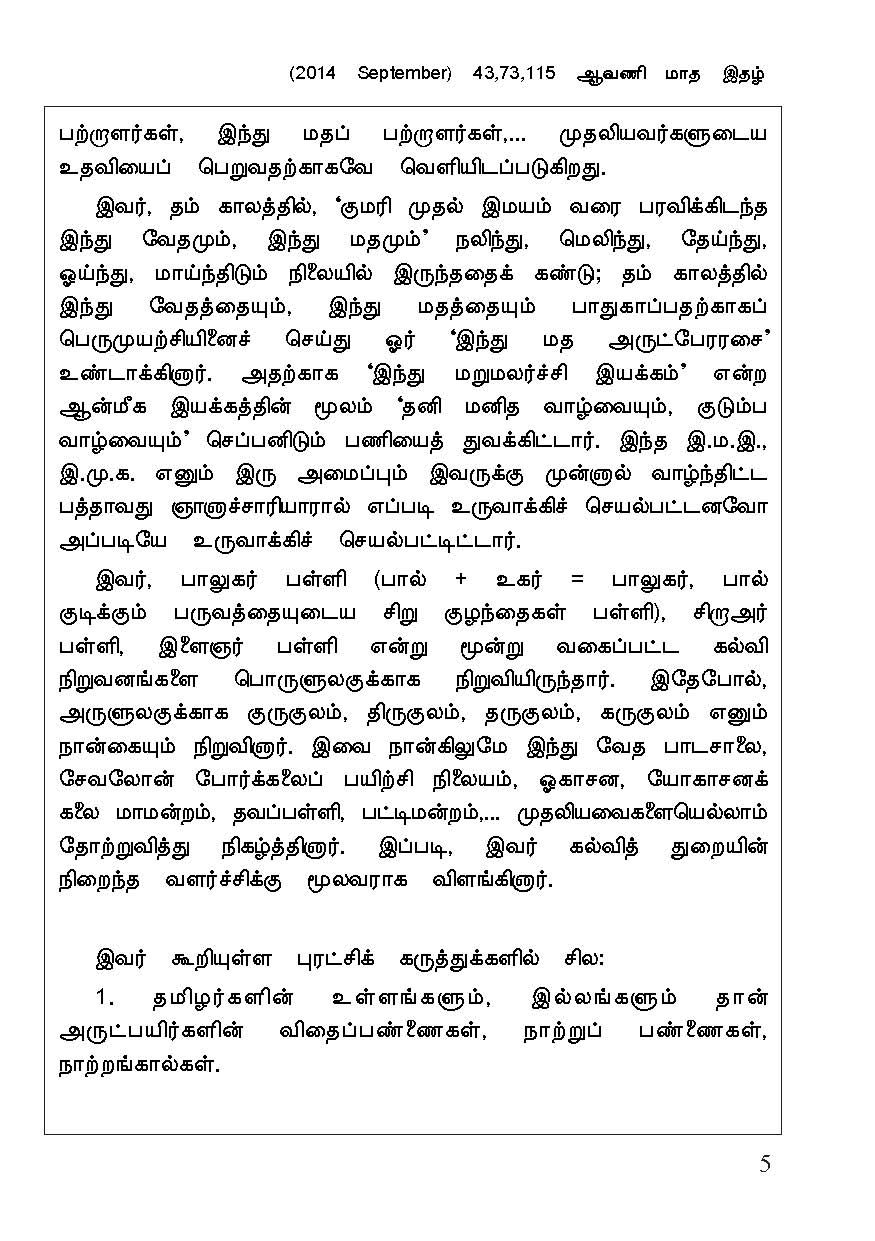 (2014 September) 43,73,115 ஆவணி மாத இதழ்
பற்றாளர்கள், இந்து மதப் பற்றாளர்கள்,... முதலியவர்களுடைய
உதவியைப் பெறுவதற்காகவே வெளியிடப்படுகிறது.
இவர், தம் காலத்தில், ‘குமரி முதல் இமயம் வரை பரவிக்கிடந்த
இந்து வேதமும், இந்து மதமும்’ நலிந்து, மெலிந்து, தேய்ந்து,
ஓய்ந்து, மாய்ந்திடும் நிலையில் இருந்ததைக் கண்டு; தம் காலத்தில்
இந்து வேதத்தையும், இந்து மதத்தையும் பாதுகாப்பதற்காகப்
பெருமுயற்சியினைச் செய்து ஓர் ‘இந்து மத அருட்பேரரசை’
உண்டாக்கினார். அதற்காக ‘இந்து மறுமலர்ச்சி இயக்கம்’ என்ற
ஆன்மீக இயக்கத்தின் மூலம் ‘தனி மனித வாழ்வையும், குடும்ப
வாழ்வையும்’ செப்பனிடும் பணியைத் துவக்கிட்டார். இந்த இ.ம.இ.,
இ.மு.க. எனும் இரு அமைப்பும் இவருக்கு முன்னால் வாழ்ந்திட்ட
பத்தாவது ஞானாச்சாரியாரால் எப்படி உருவாக்கிச் செயல்பட்டனவோ
அப்படியே உருவாக்கிச் செயல்பட்டிட்டார்.
இவர், பாலுகர் பள்ளி (பால் + உகர் = பாலுகர், பால்
குடிக்கும் பருவத்தையுடைய சிறு குழந்தைகள் பள்ளி), சிறாஅர்
பள்ளி, இளைஞர் பள்ளி என்று மூன்று வகைப்பட்ட கல்வி
நிறுவனங்களை பொருளுலகுக்காக நிறுவியிருந்தார். இதேபோல்,
அருளுலகுக்காக குருகுலம், திருகுலம், தருகுலம், கருகுலம் எனும்
நான்கையும் நிறுவினார். இவை நான்கிலுமே இந்து வேத பாடசாலை,
சேவலோன் போர்க்கலைப் பயிற்சி நிலையம், ஓகாசன, யோகாசனக்
கலை மாமன்றம், தவப்பள்ளி, பட்டிமன்றம்,... முதலியவைகளையெல்லாம்
தோற்றுவித்து நிகழ்த்தினார். இப்படி, இவர் கல்வித் துறையின்
நிறைந்த வளர்ச்சிக்கு மூலவராக விளங்கினார்.
இவர் கூறியுள்ள புரட்சிக் கருத்துக்களில் சில:
1. தமிழர்களின் உள்ளங்களும், இல்லங்களும் தான்
அருட்பயிர்களின் விதைப்பண்ணைகள், நாற்றுப் பண்ணைகள்,
நாற்றங்கால்கள்.
5